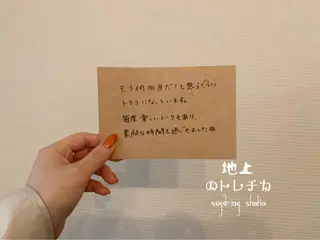 もう何回目だ?と思うぐらい
トリコになっていますね
毎度楽しいトークもあり、
素敵な時間を過ごせました
地上
のトレチカ
studio